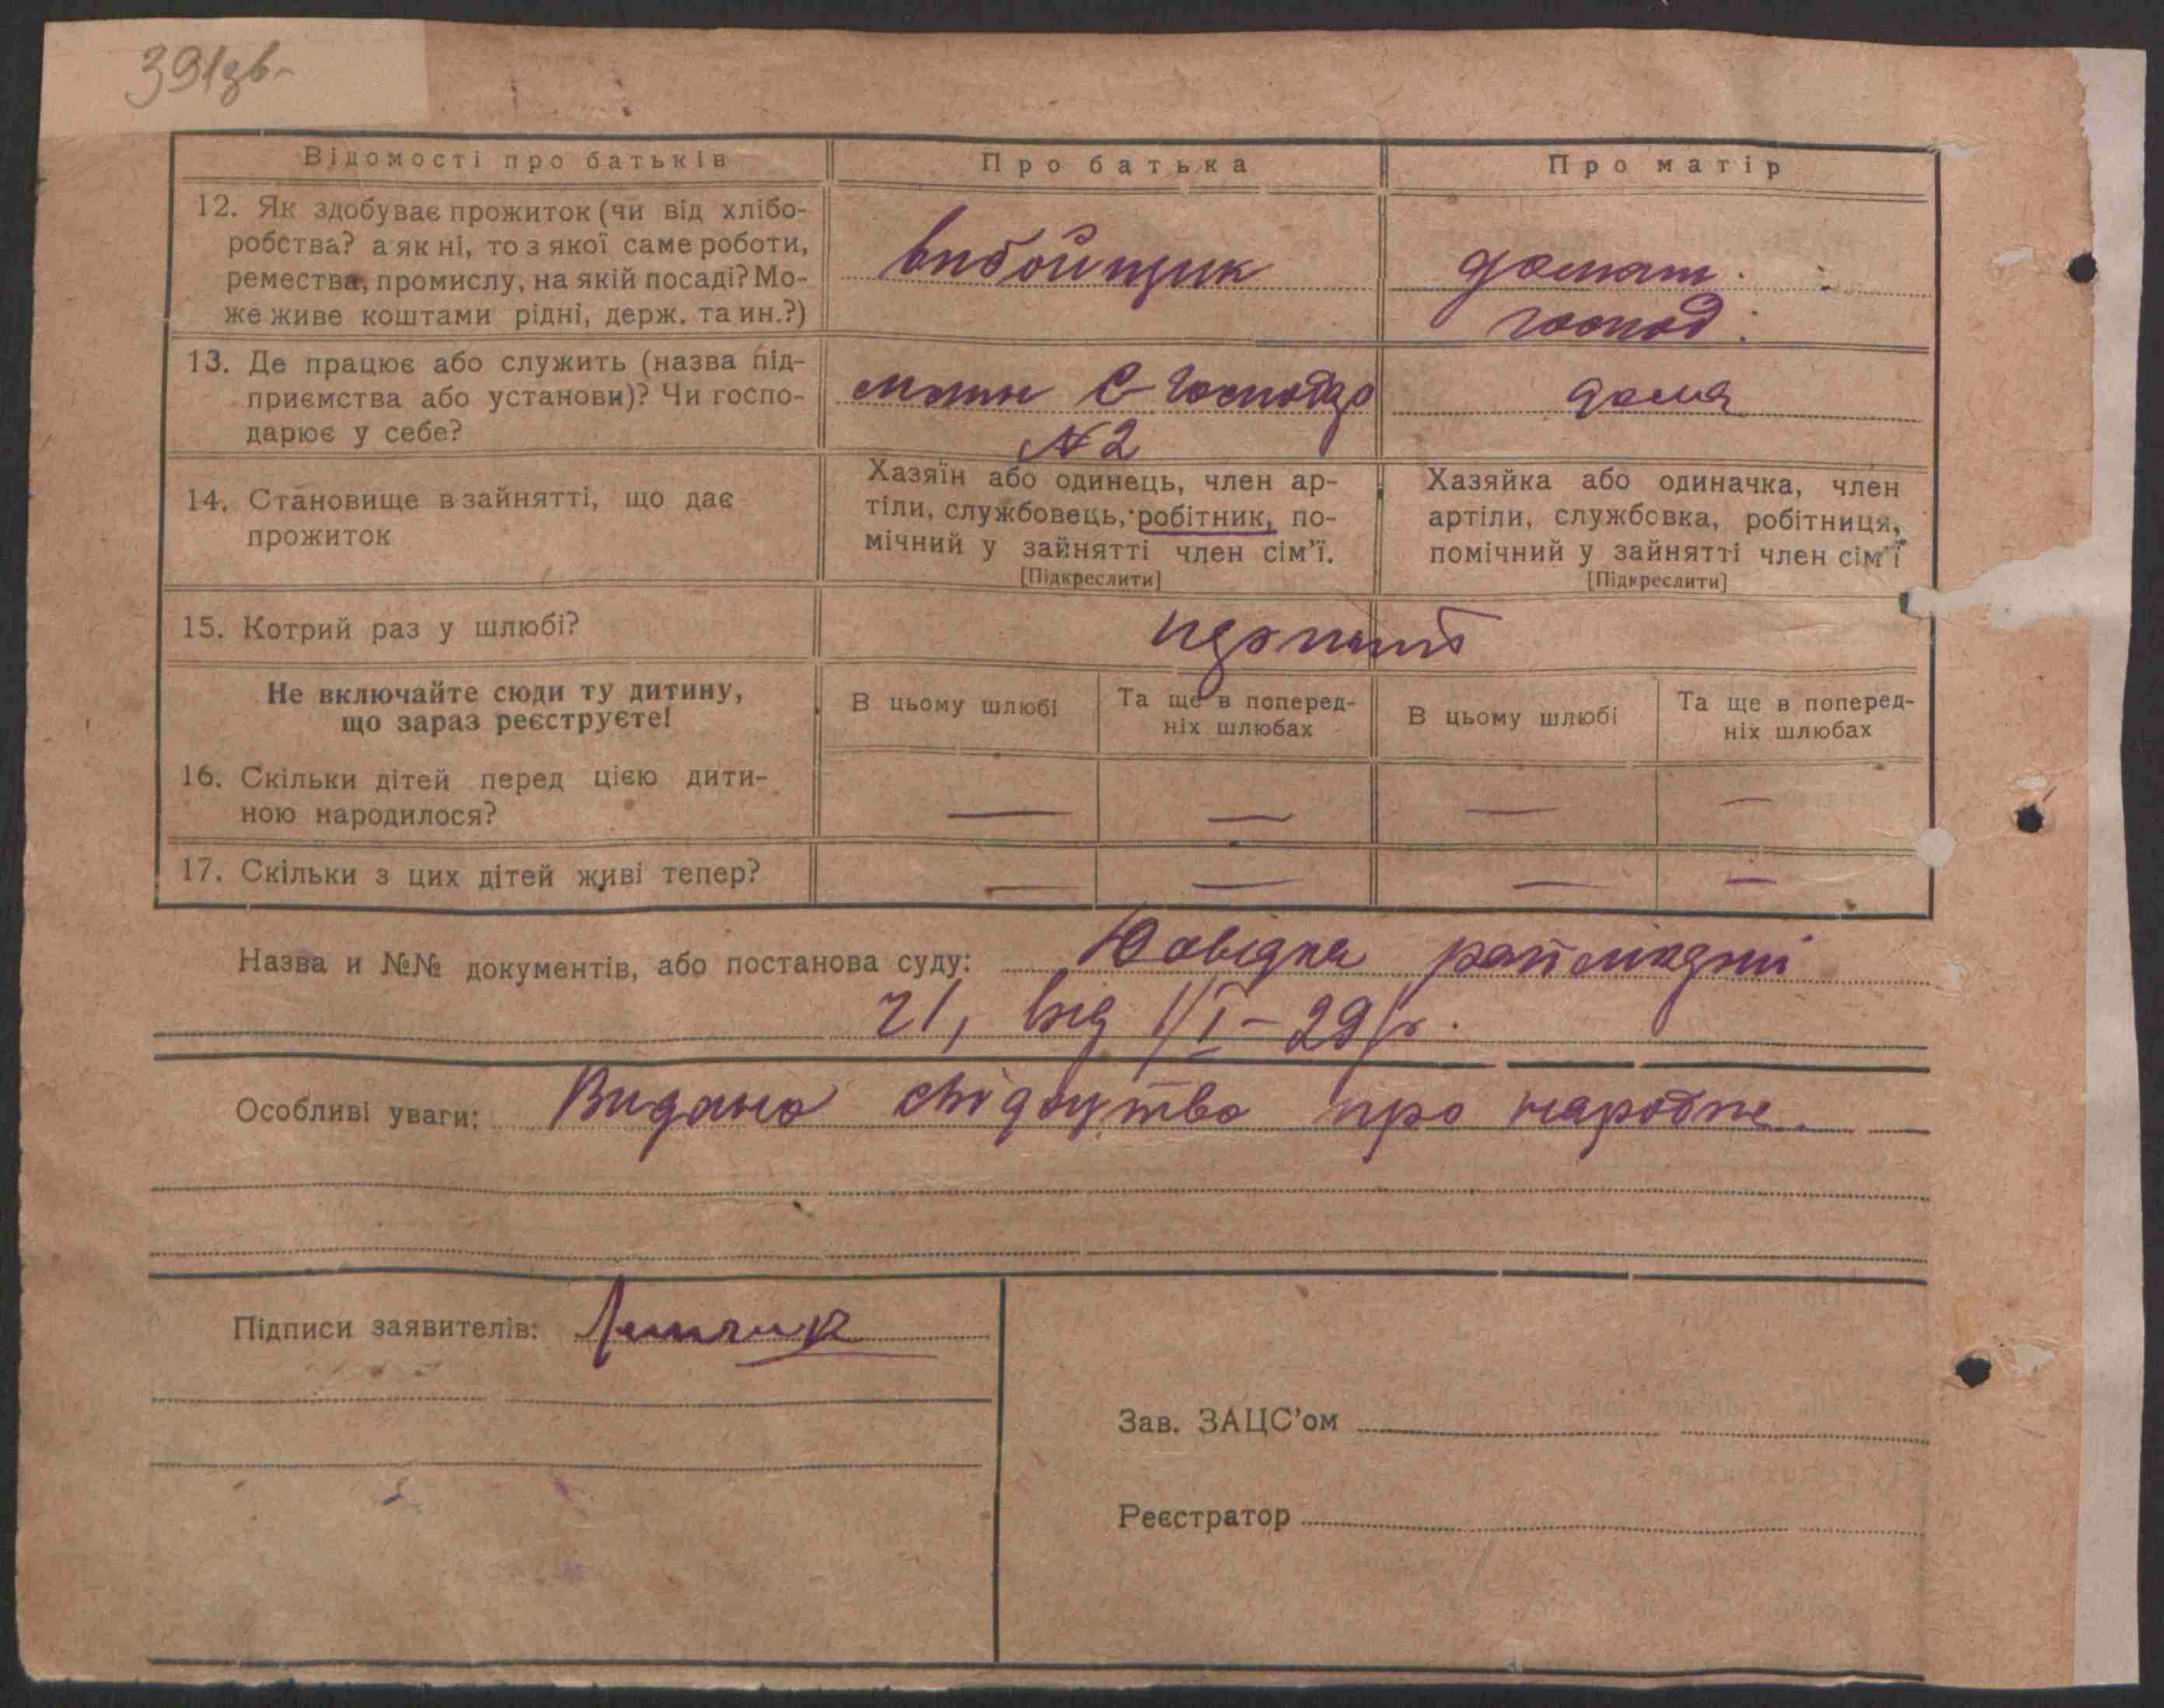 391зв-
Відомості про батьків
Про батька
Про матір
12. Як здобуває прожиток (чи від хлібо-
робства? а як ні, то з якої саме роботи,
ремества, промислу, на якій посаді? Мо-
же живе коштами рідні, держ. та ин.?)
вибойщик
домаш.
господ.
13. Де працює або служить (назва під-
приємства або установи)? Чи госпо-
дарює у себе?
млин
№2
дома
14. Становище в зайнятті, що дає
прожиток
Хазяїн або одинець, член ар-
тіли, службовець, робітник, по-
мічний у зайнятті член сім'ї.
[Підкреслити]
Хазяйка або одиначка, член
артіли, службовка, робітниця,
помічний у зайнятті член сім'ї
[Підкреслити]
15. Котрий раз у шлюбі?
перший
Не включайте сюди ту дитину,
що зараз реєструєте!
В цьому шлюбі
Та ще в поперед-
ніх шлюбах
В цьому шлюбі
Та ще в поперед-
ніх шлюбах
16. Скільки дітей перед цією дити-
ною народилося?
— — — —
17. Скільки з цих дітей живі тепер?
— — — —
Назва и №№ документів, або постанова суду: Довідка
21, від 1/I-29 р.
Особливі уваги: Видано свідоцтво про народже.
Підписи заявителів:
Зав. ЗАЦС'ом
Реєстратор